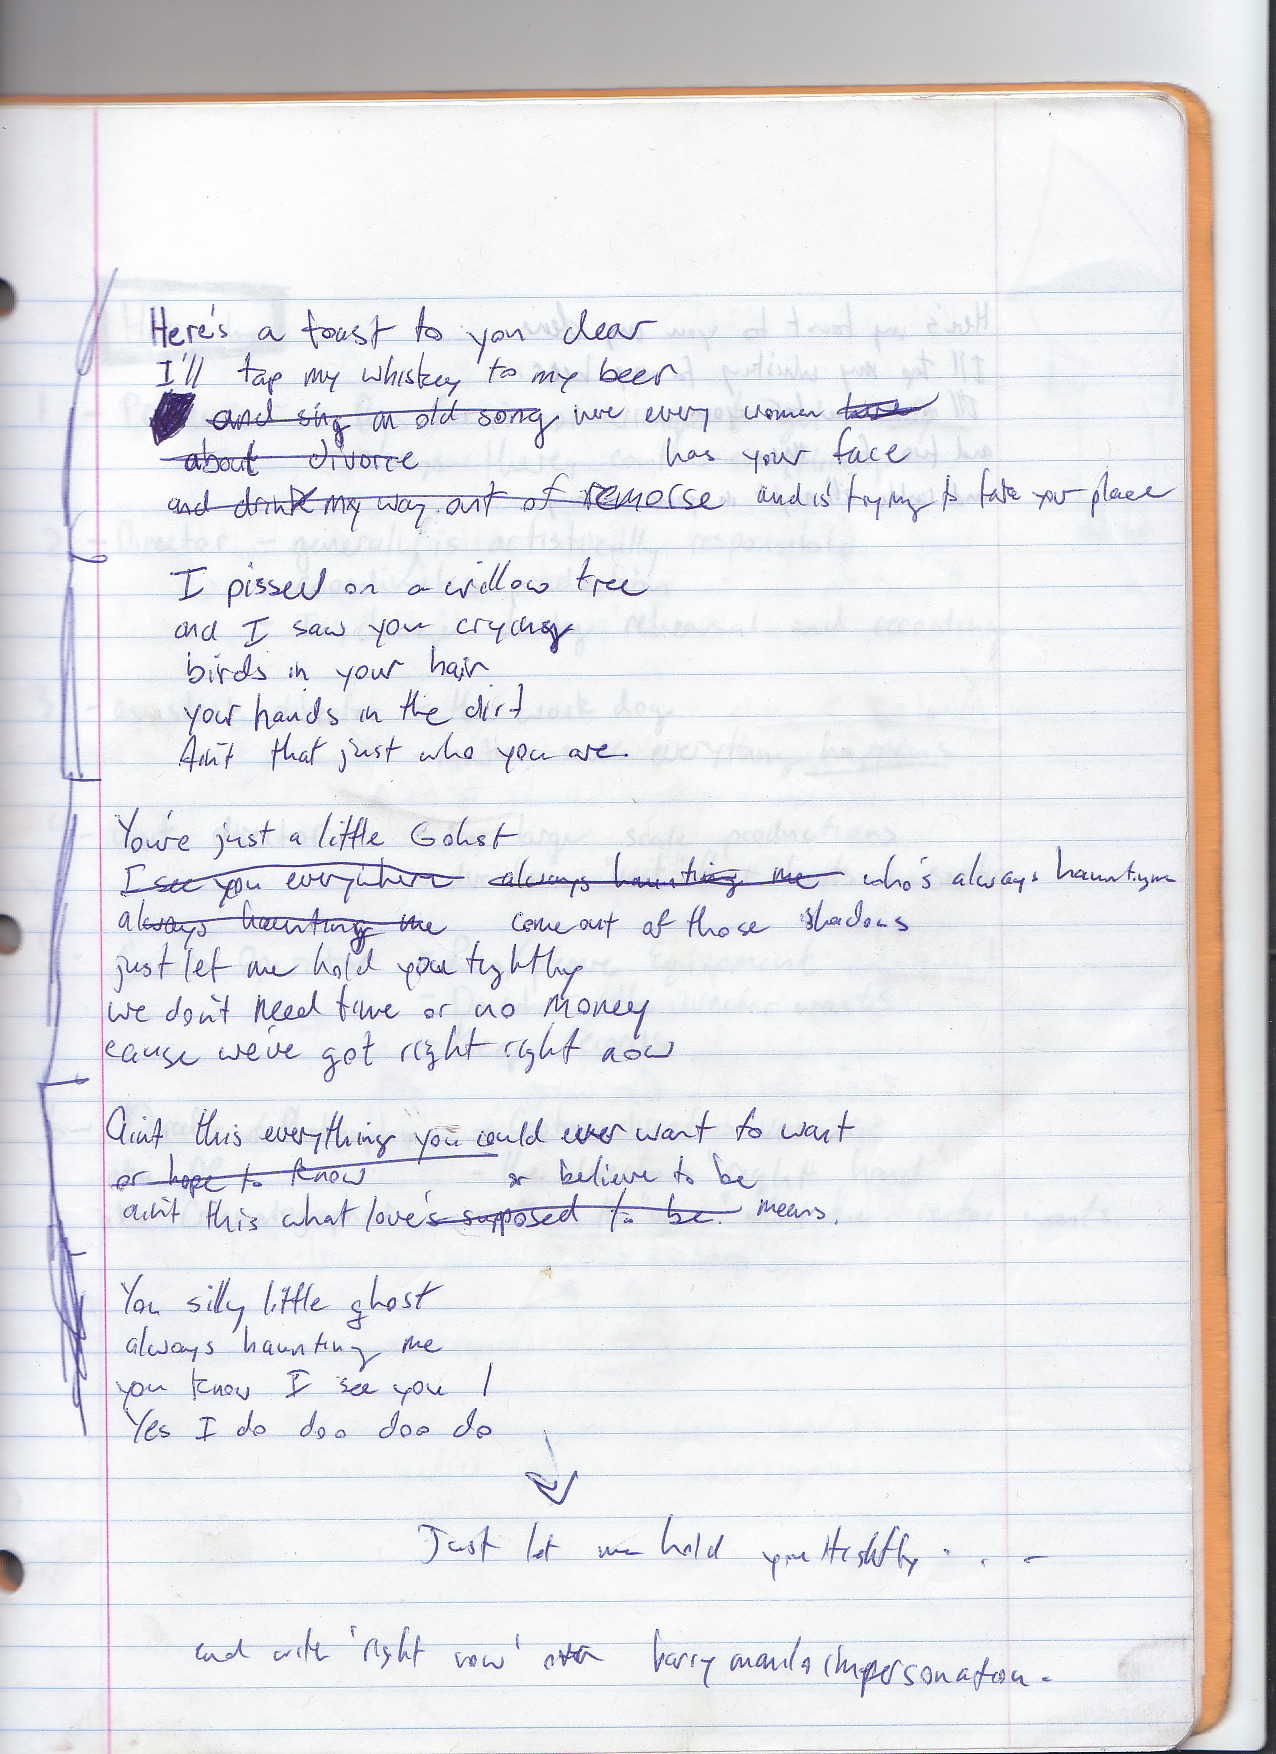 Here's a toast to you dear
I'll tap my whiskey to my beer
and sing an old song every woman have
about divorce has your face
and drink my way out of remorse and is trying to take your place
I pissed on a willow tree
and I saw you crying
birds in your hair
your hands in the dirt
Ain't that just who you are.
You're just a little Gohst
I see you everywhere always haunting me who's always haunting me
always haunting me come out of those shadows
just let me hold you tightly
we don't need time or no money
cause we've got right right now
Aint this everything you could ever want to want
or hope to know or believe to be
ain't this what love's supposed to be. means.
You silly little ghost
always haunting me
you know I see you!
Yes I do doo doo do
Just let me hold you tightly . . . -
and with 'right now' barry manilo impersonation.